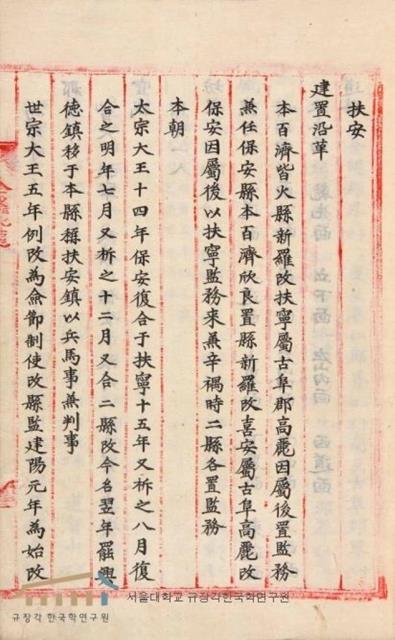 扶安
建置沿革
本百濟皆火縣新羅改扶寧屬古阜郡高麗因屬後置監務
兼任保安縣本百濟欣良買縣新羅改喜安屬古阜高麗改
保安因屬後以扶寧監務來兼辛禑時二縣各置監務
本朝
太宗大王十四年保安復合于扶寧十五年又析之八月復
合之明年七月又析之十二月又合二縣改今名翌年罷興
德鎭移于本縣稱扶安鎭以兵馬事兼判事
世宗大王五年例改為僉節制使改縣監建陽元年為始改
서울대학교 규장각한국학연구원
규장각 한국학연구원